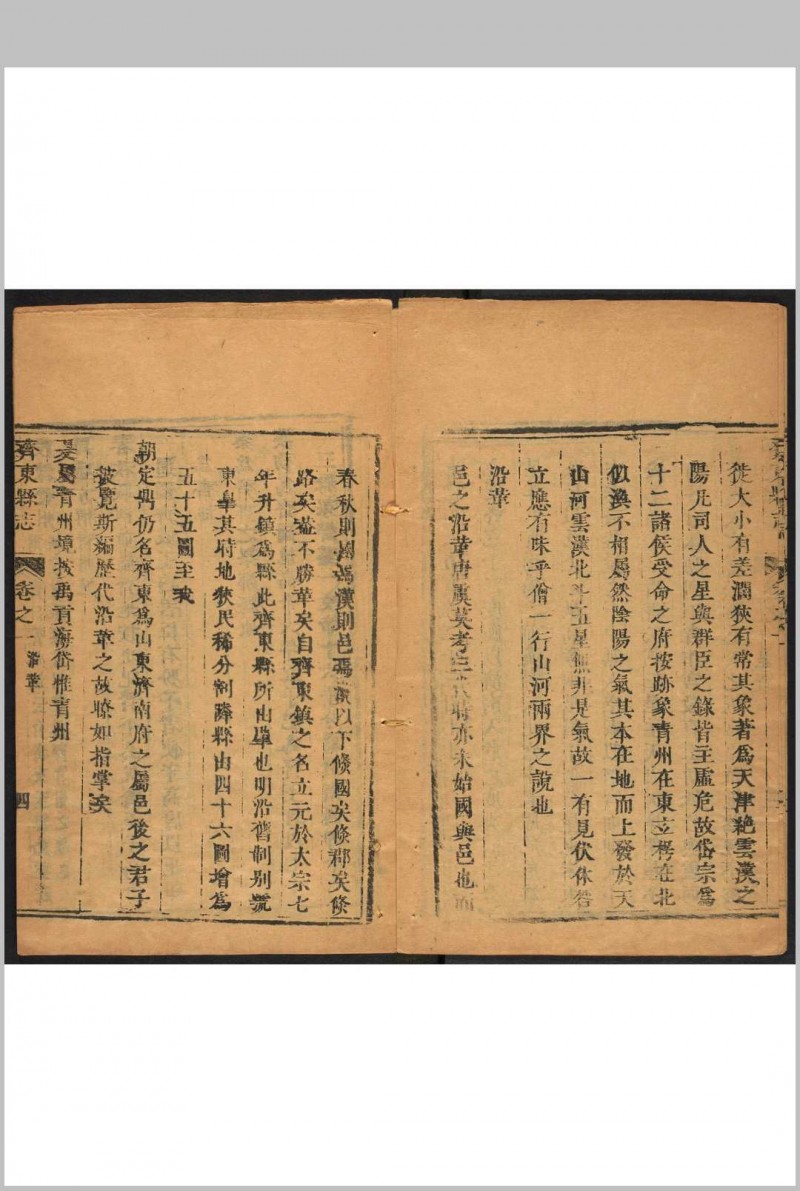 徙大小有差濶狹有常其象著爲天津絶雲漢之
陽凡司人之星與群臣之錄皆主虛危故岱宗爲
十二諸侯受命之府按跡象青州在東立楞在北
似渙不相屬然陰陽之氣其本在地而上發於天
山河雲漢北斗五星無非是氣故一有見伏休咎
立應有味乎僧一行山河兩界之說也
沿革
邑之沿革唐虞莫考三代時亦未始國與邑也而
春秋則國焉漢則邑焉以下倏國矣倏郡矣倏
路矣葢不勝革矣自齊東鎮之名立元於太宗七
年升鎮爲縣此齊東縣所由肇也明沿舊制别號
東皐其時地狹民稀分割隣縣由四十六圖增爲
五十五圖至我
朝定興仍名齊東爲山東濟南府之屬邑後之君子
披覽斯編歷代沿革之故瞭如指掌矣
夏屬青州境按禹貢海岱惟青州
齊東縣志 卷之一 沿革 四